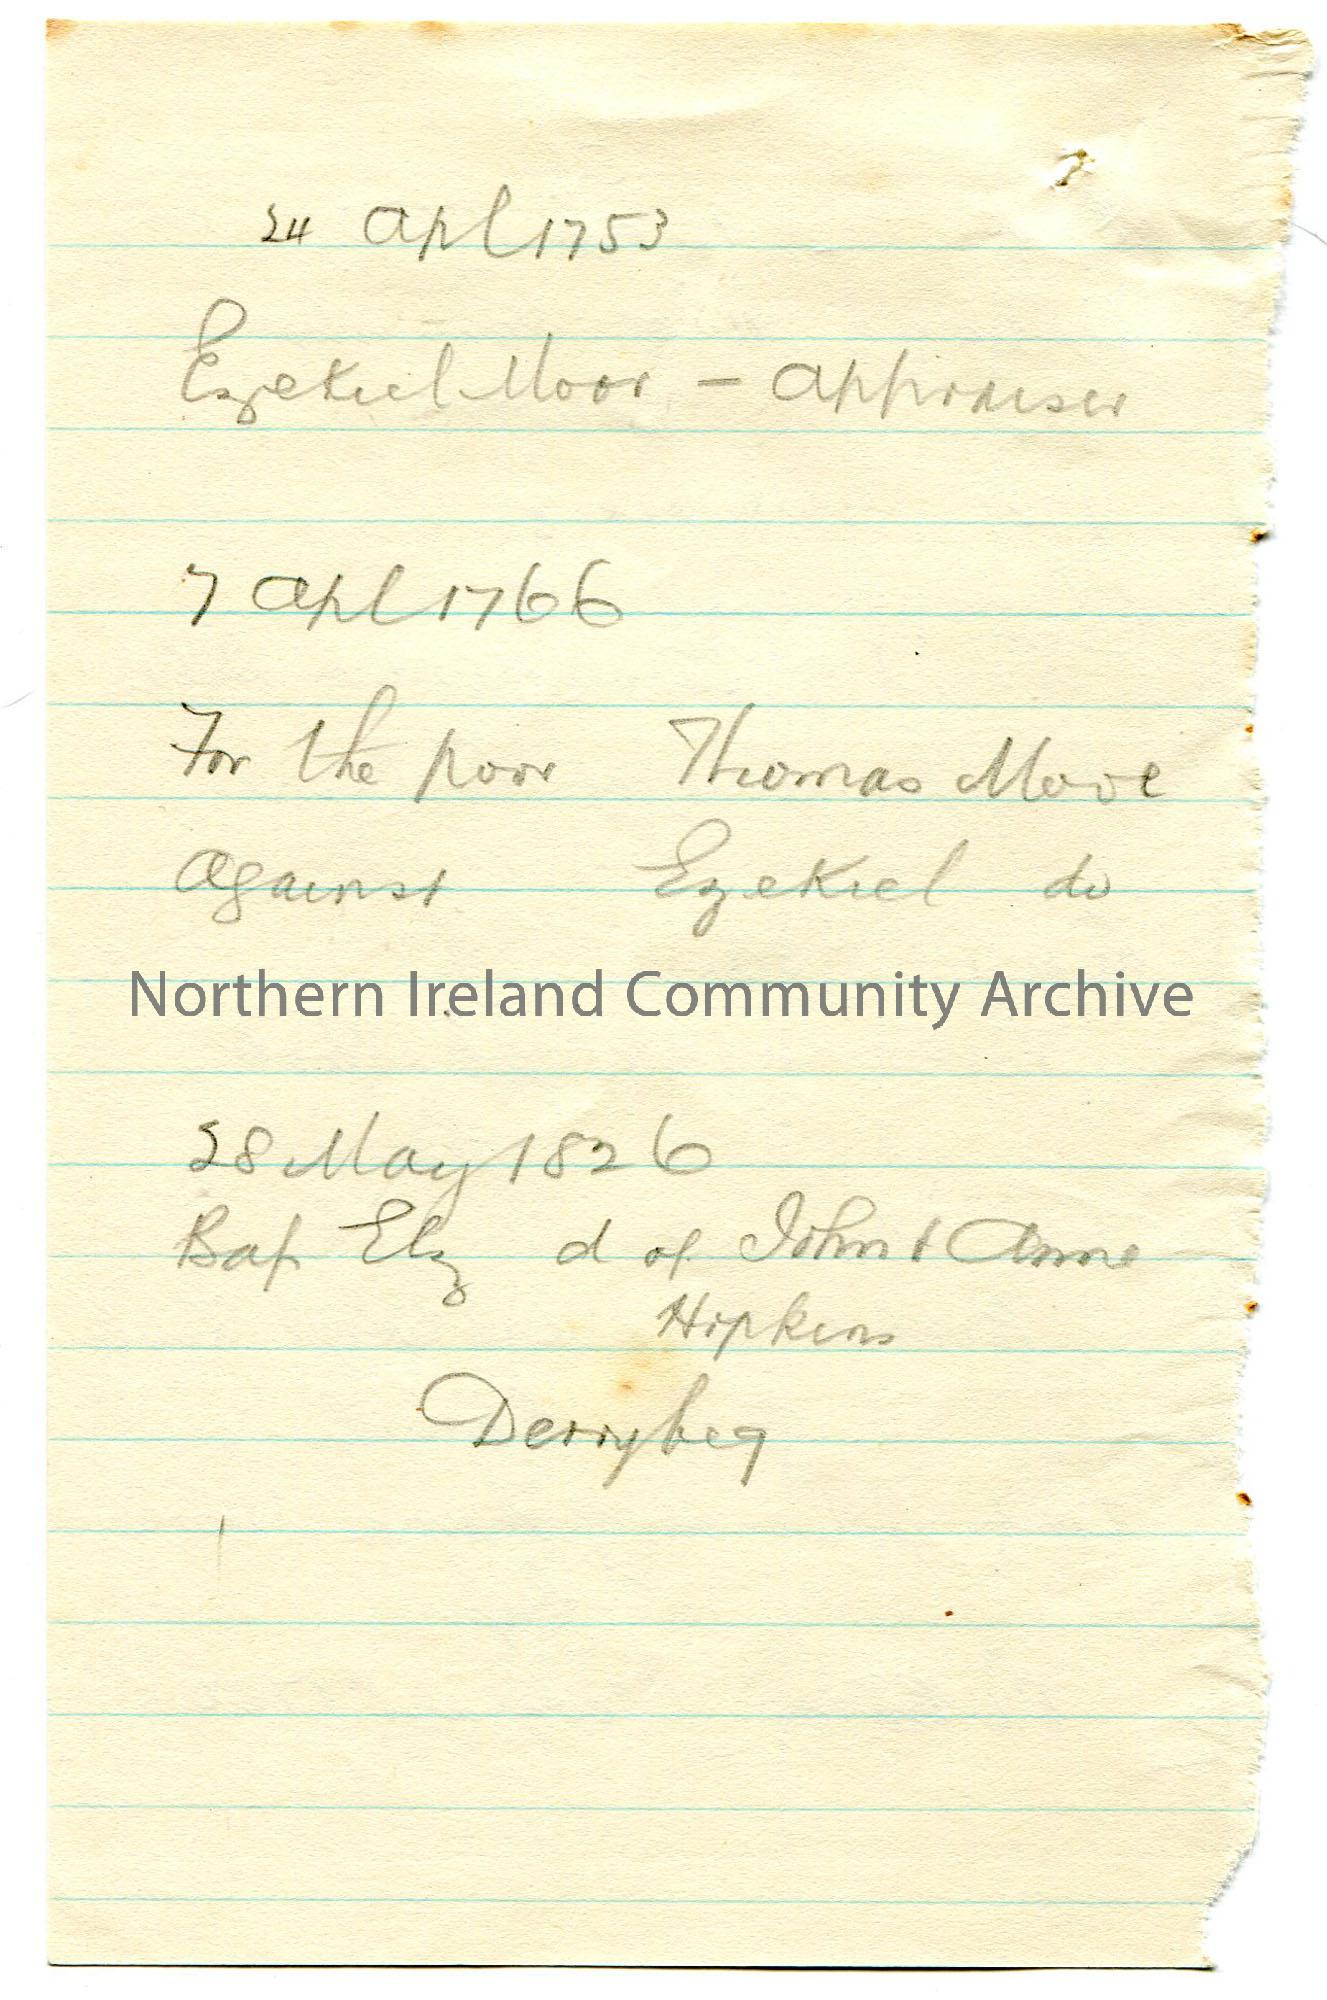 24 Apl 1753
Ezekiel Moor — appraiser
7 Apl 1766
For the poor Thomas Moore
against Ezekiel do
Northern Ireland Community Archive
28 May 1826
Bap Elz d of John & Anne
Hipkins
Derrybeg